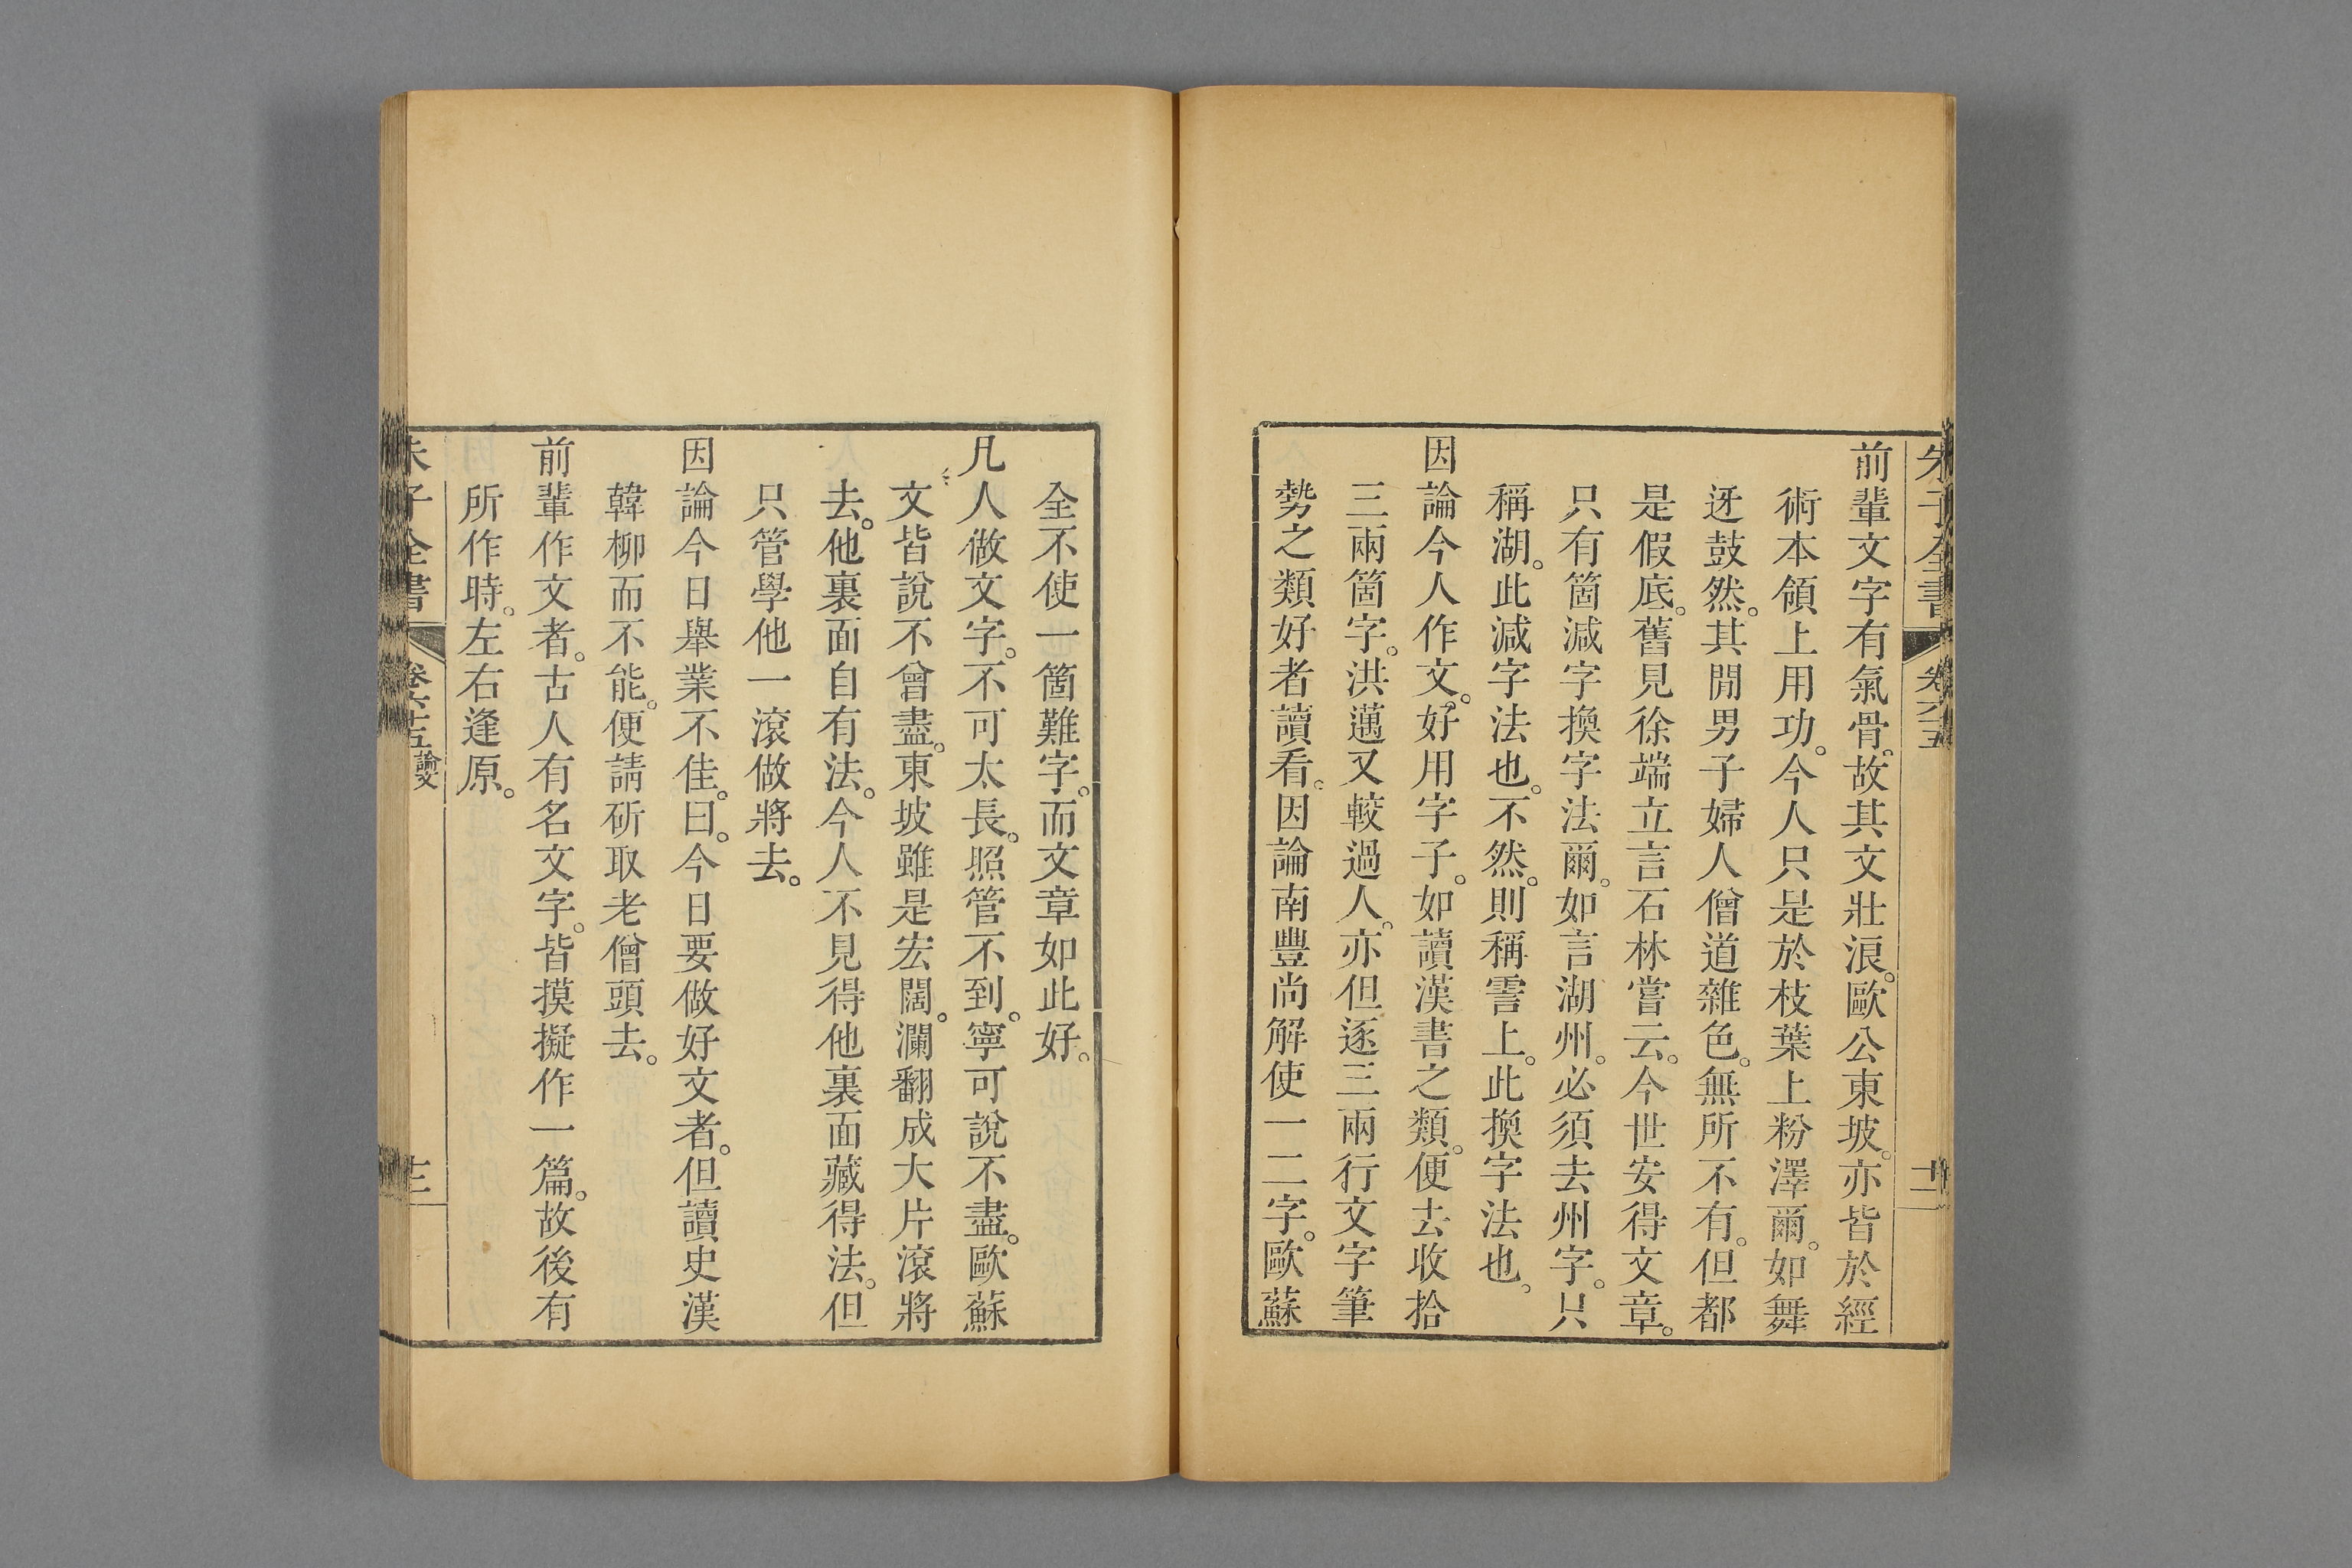 朱子全書 卷六十五 十二
前輩文字有氣骨。故其文壯浪。歐公東坡。亦皆於經
術本領上用功。今人只是於枝葉上粉澤爾。如舞
迓鼓然。其閒男子婦人僧道雜色。無所不有。但都
是假底。舊見徐端立言石林嘗云。今世安得文章。
只有箇減字換字法爾。如言湖州。必須去州字。只
稱湖。此減字法也。不然。則稱霅上。此換字法也。
因論今人作文。好用字子。如讀漢書之類。便去收拾
三兩箇字。洪邁又較過人。亦但逐三兩行文字筆
勢之類好者讀看。因論南豐尚解使一二字。歐蘇
全不使一箇難字。而文章如此好。
凡人做文字。不可太長。照管不到。寧可說不盡。歐蘇
文皆說不曾盡。東坡雖是宏闊。瀾翻成大片滾將
去。他裏面自有法。今人不見得他裏面藏得法。但
只管學他一滾做將去。
因論今日舉業不佳。曰。今日要做好文者。但讀史漢
韓柳而不能。便請斫取老僧頭去。
前輩作文者。古人有名文字。皆摸擬作一篇。故後有
所作時。左右逢原。
朱子全書 卷六十五 論文 十三